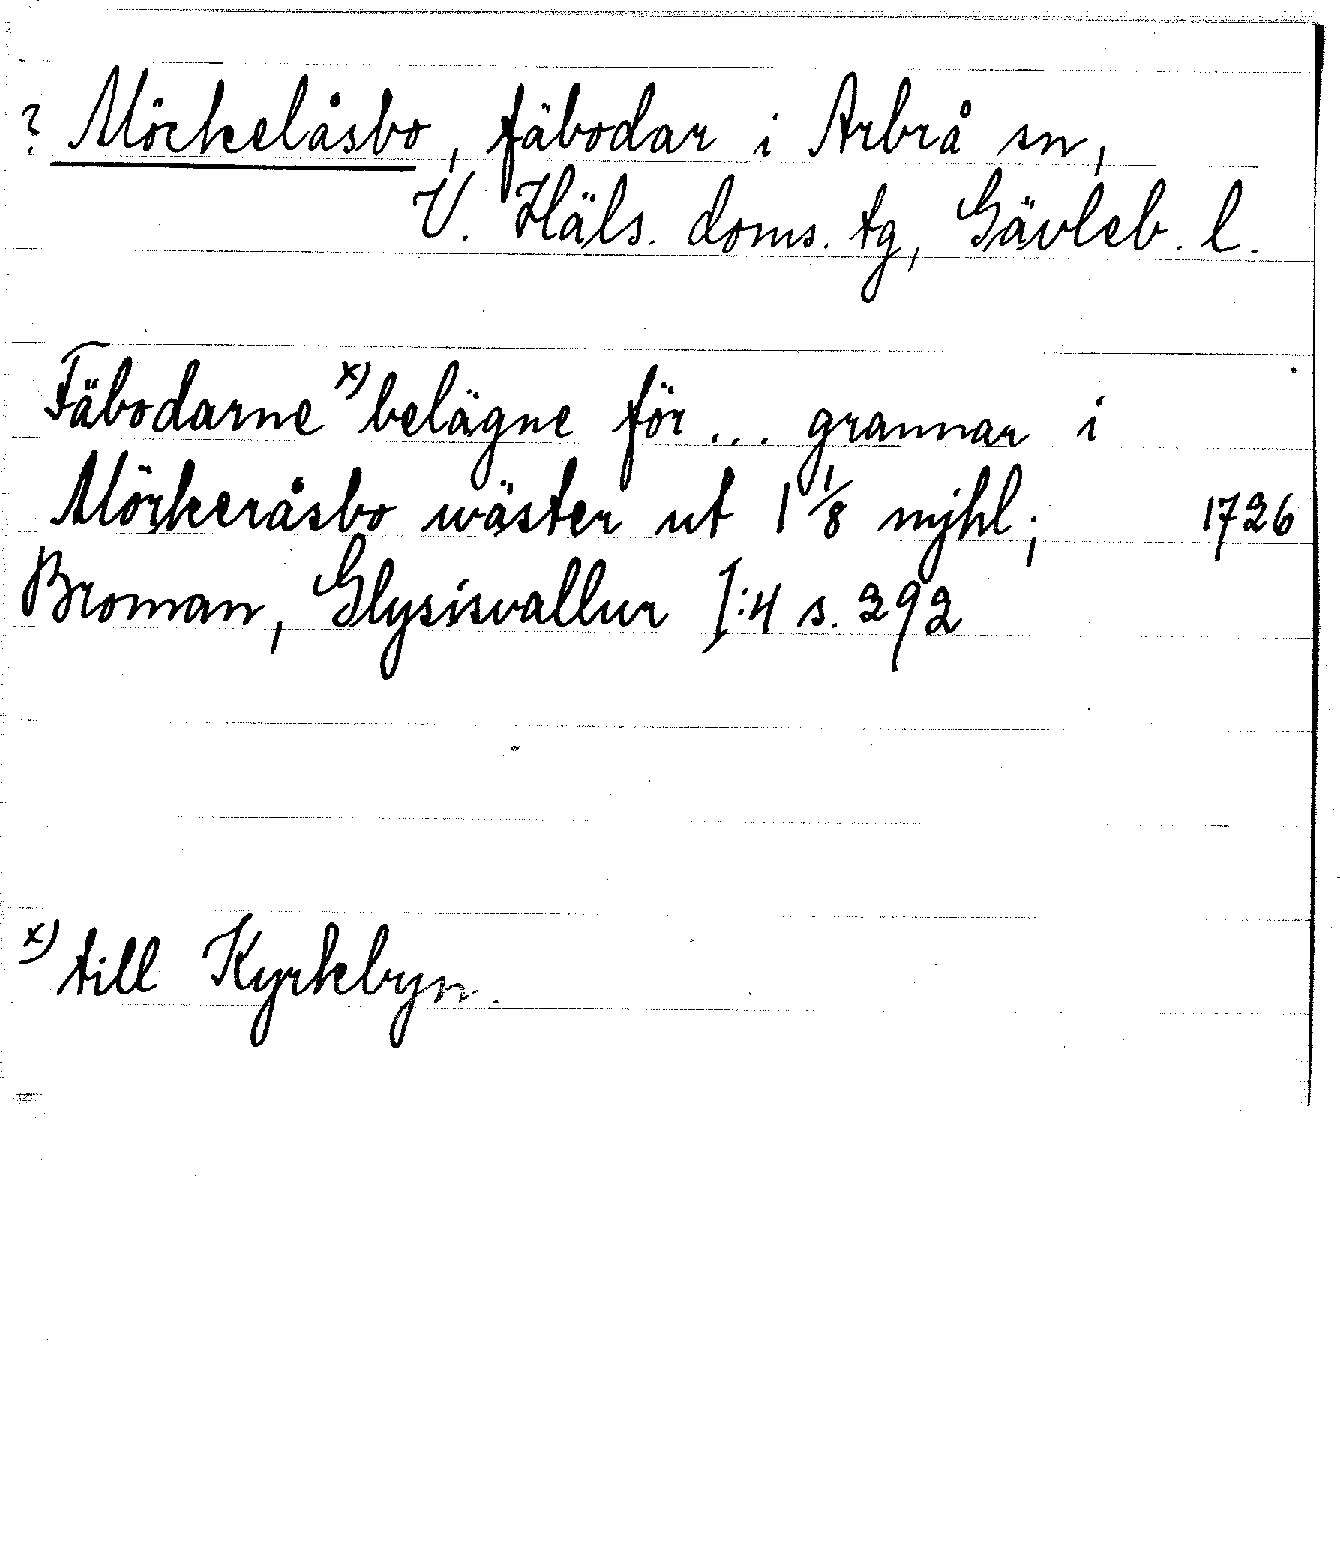 ? Mörkelåsbo, fäbodar i Arbrå sn,
V. Häls. doms. tg, Gävleb. l.
Fäbodarne x) belägne för ... grannar i
Mörkeråsbo wäster ut 1 1/8 mÿhl; 1726
Broman, Glysisvallur I:4 s. 292
x) till Kyrkbyn.